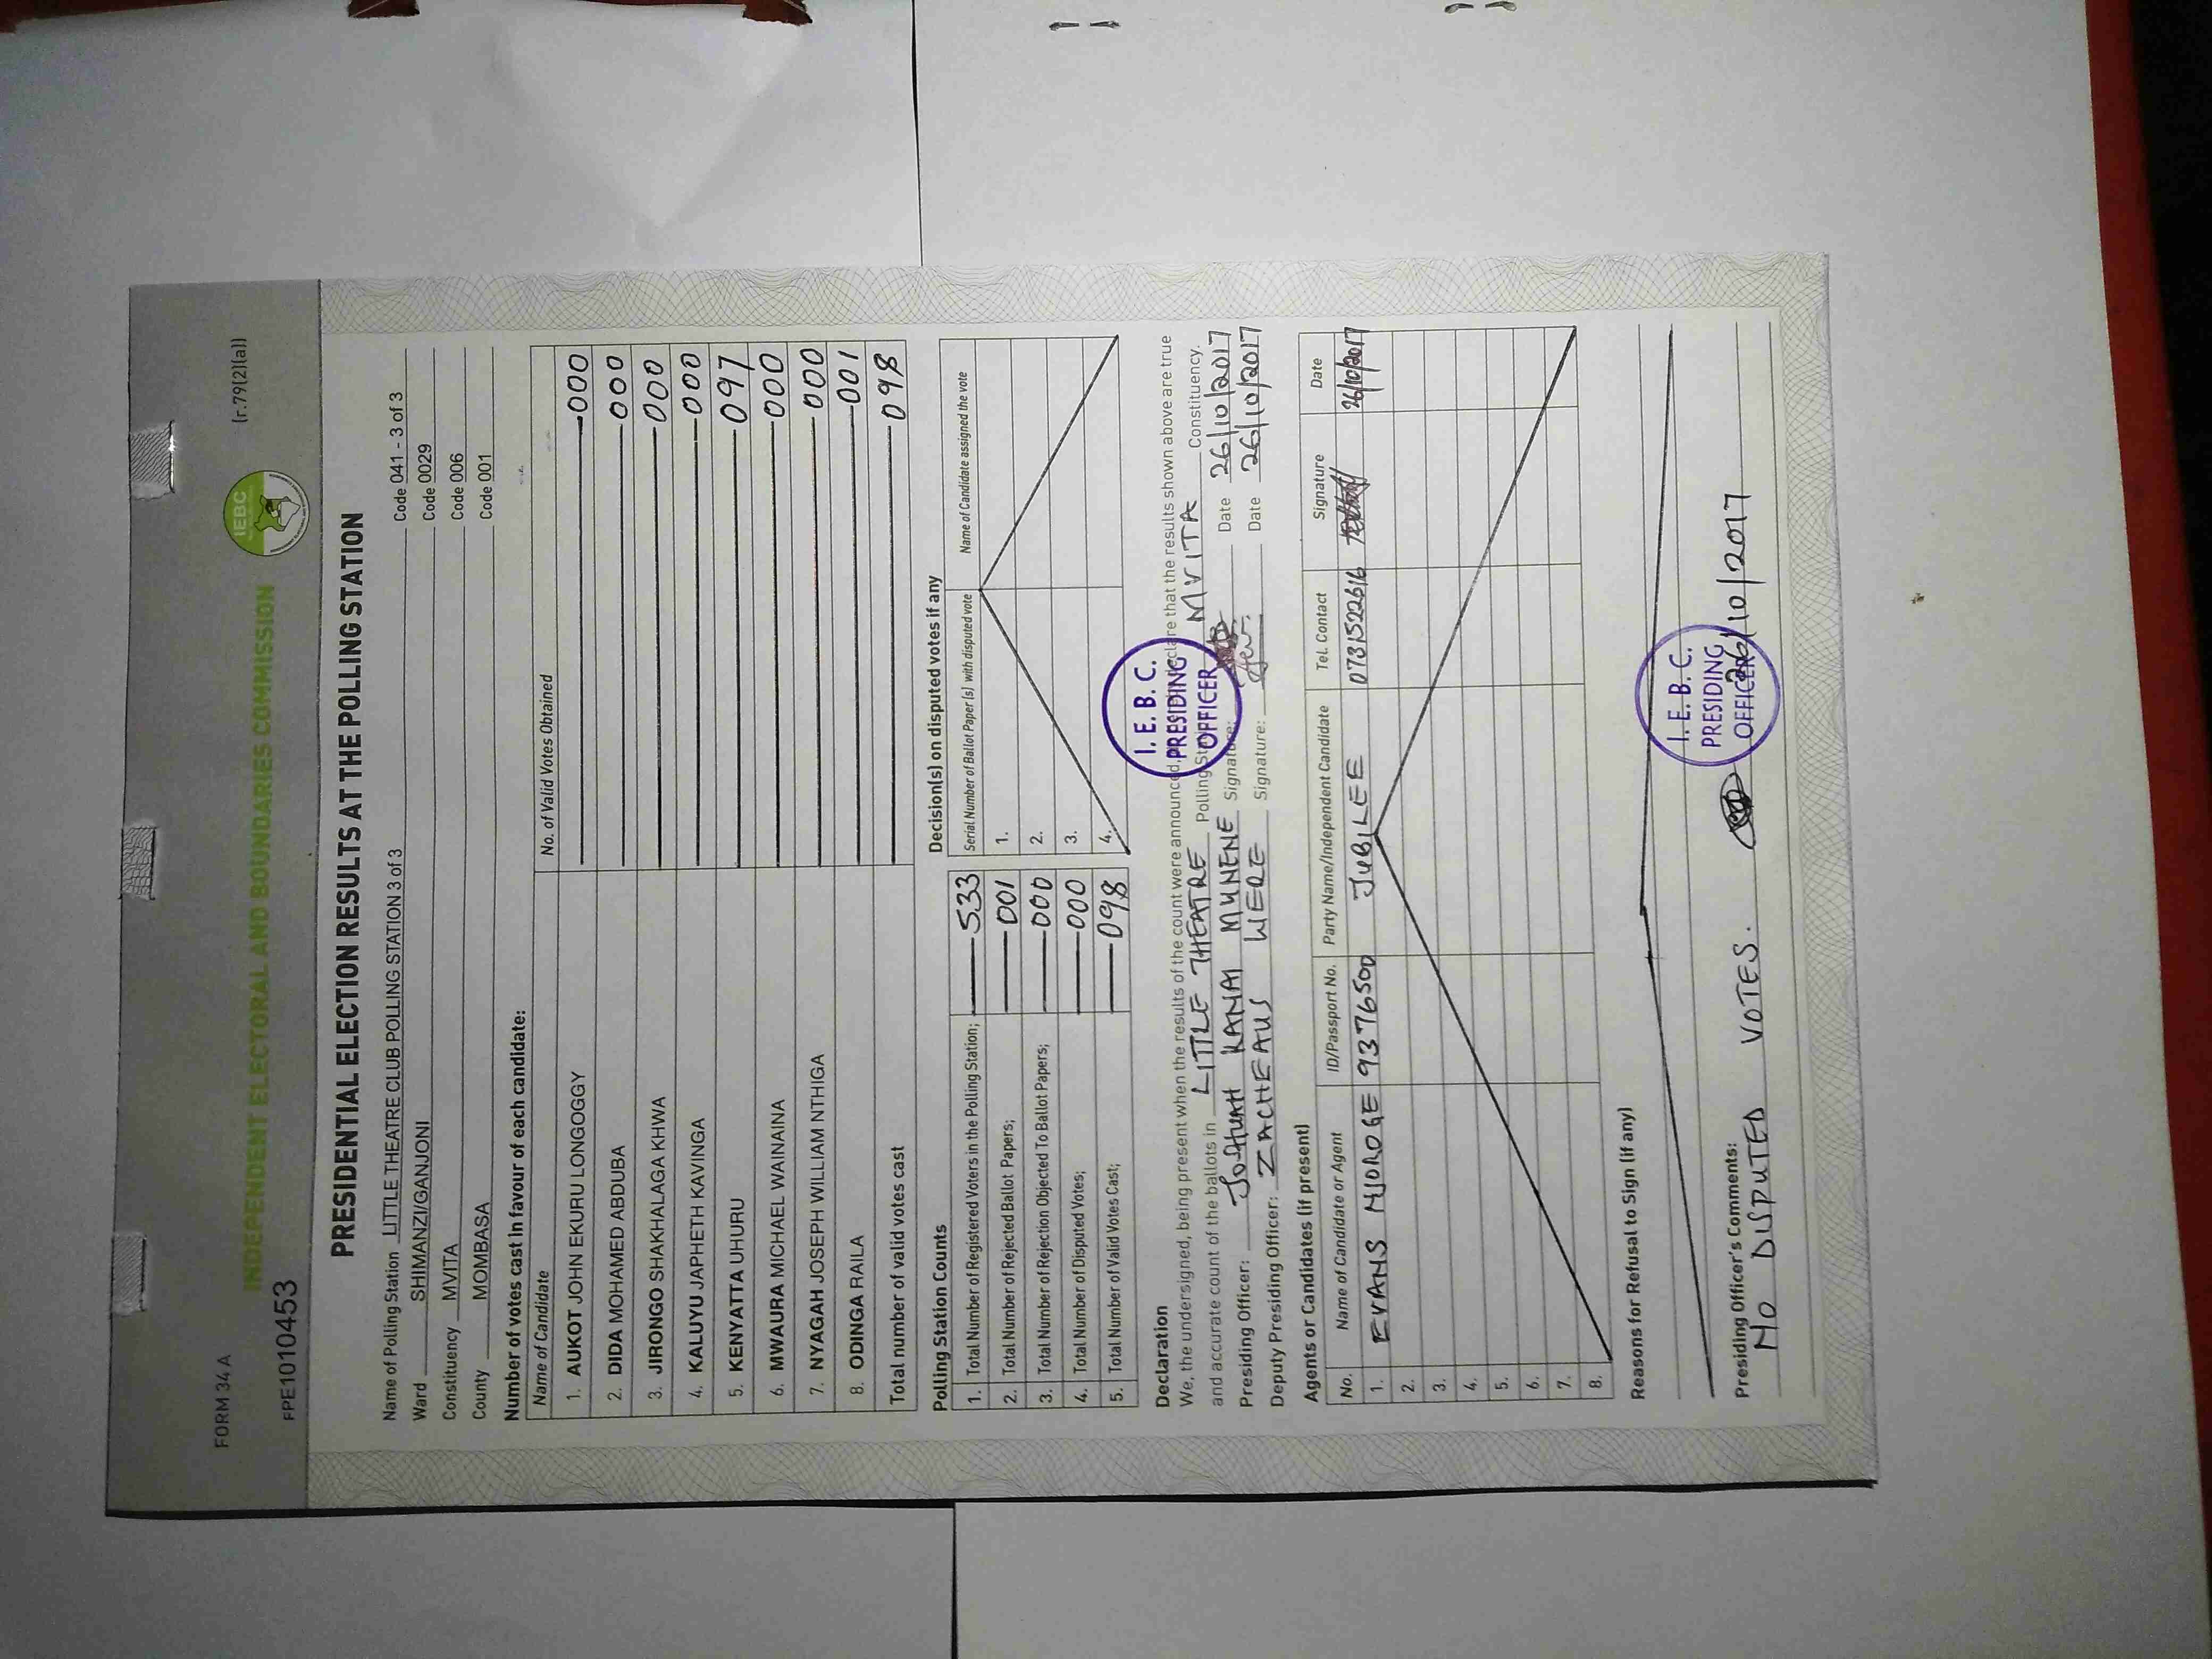 FORM 34 A (r.79(2)(a))
IEBC
INDEPENDENT ELECTORAL AND BOUNDARIES COMMISSION
FPE1010453
PRESIDENTIAL ELECTION RESULTS AT THE POLLING STATION
Name of Polling Station LITTLE THEATRE CLUB POLLING STATION 3 of 3 Code 041 - 3 of 3
Ward SHIMANZI/GANJONI Code 0029
Constituency MVITA Code 006
County MOMBASA Code 001
Number of votes cast in favour of each candidate:
Name of Candidate No. of Valid Votes Obtained
1. AUKOT JOHN EKURU LONGOGGY 000
2. DIDA MOHAMED ABDUBA 000
3. JIRONGO SHAKHALAGA KHWA 000
4. KALUYU JAPHETH KAVINGA 000
5. KENYATTA UHURU 097
6. MWAURA MICHAEL WAINAINA 000
7. NYAGAH JOSEPH WILLIAM NTHIGA 000
8. ODINGA RAILA 001
Total number of valid votes cast 098
Polling Station Counts
1. Total Number of Registered Voters in the Polling Station; 533
2. Total Number of Rejected Ballot Papers; 001
3. Total Number of Rejection Objected To Ballot Papers; 000
4. Total Number of Disputed Votes; 000
5. Total Number of Valid Votes Cast; 098
Decision(s) on disputed votes if any
Serial Number of Ballot Paper (s) with disputed vote Name of Candidate assigned the vote
1.
2.
3.
4.
Declaration
We, the undersigned, being present when the results of the count were announced, declare that the results shown above are true
and accurate count of the ballots in LITTLE THEATRE Polling MVITA Constituency.
Presiding Officer: JOSHUAH KANAI MUNENE Signature: Date 26/10/2017
Deputy Presiding Officer: ZACHEAUS WERE Signature: Date 26/10/2017
I. E. B. C.
PRESIDING
OFFICER
Agents or Candidates (if present)
No. Name of Candidate or Agent ID/Passport No. Party Name/Independent Candidate Tel. Contact Signature Date
1. EVANS NJOROGE 9376500 JUBILEE 0731522616 26/10/2017
2.
3.
4.
5.
6.
7.
8.
Reasons for Refusal to Sign (if any)
I. E. B. C.
PRESIDING
OFFICER
Presiding Officer's Comments:
NO DISPUTED VOTES. 26/10/2017